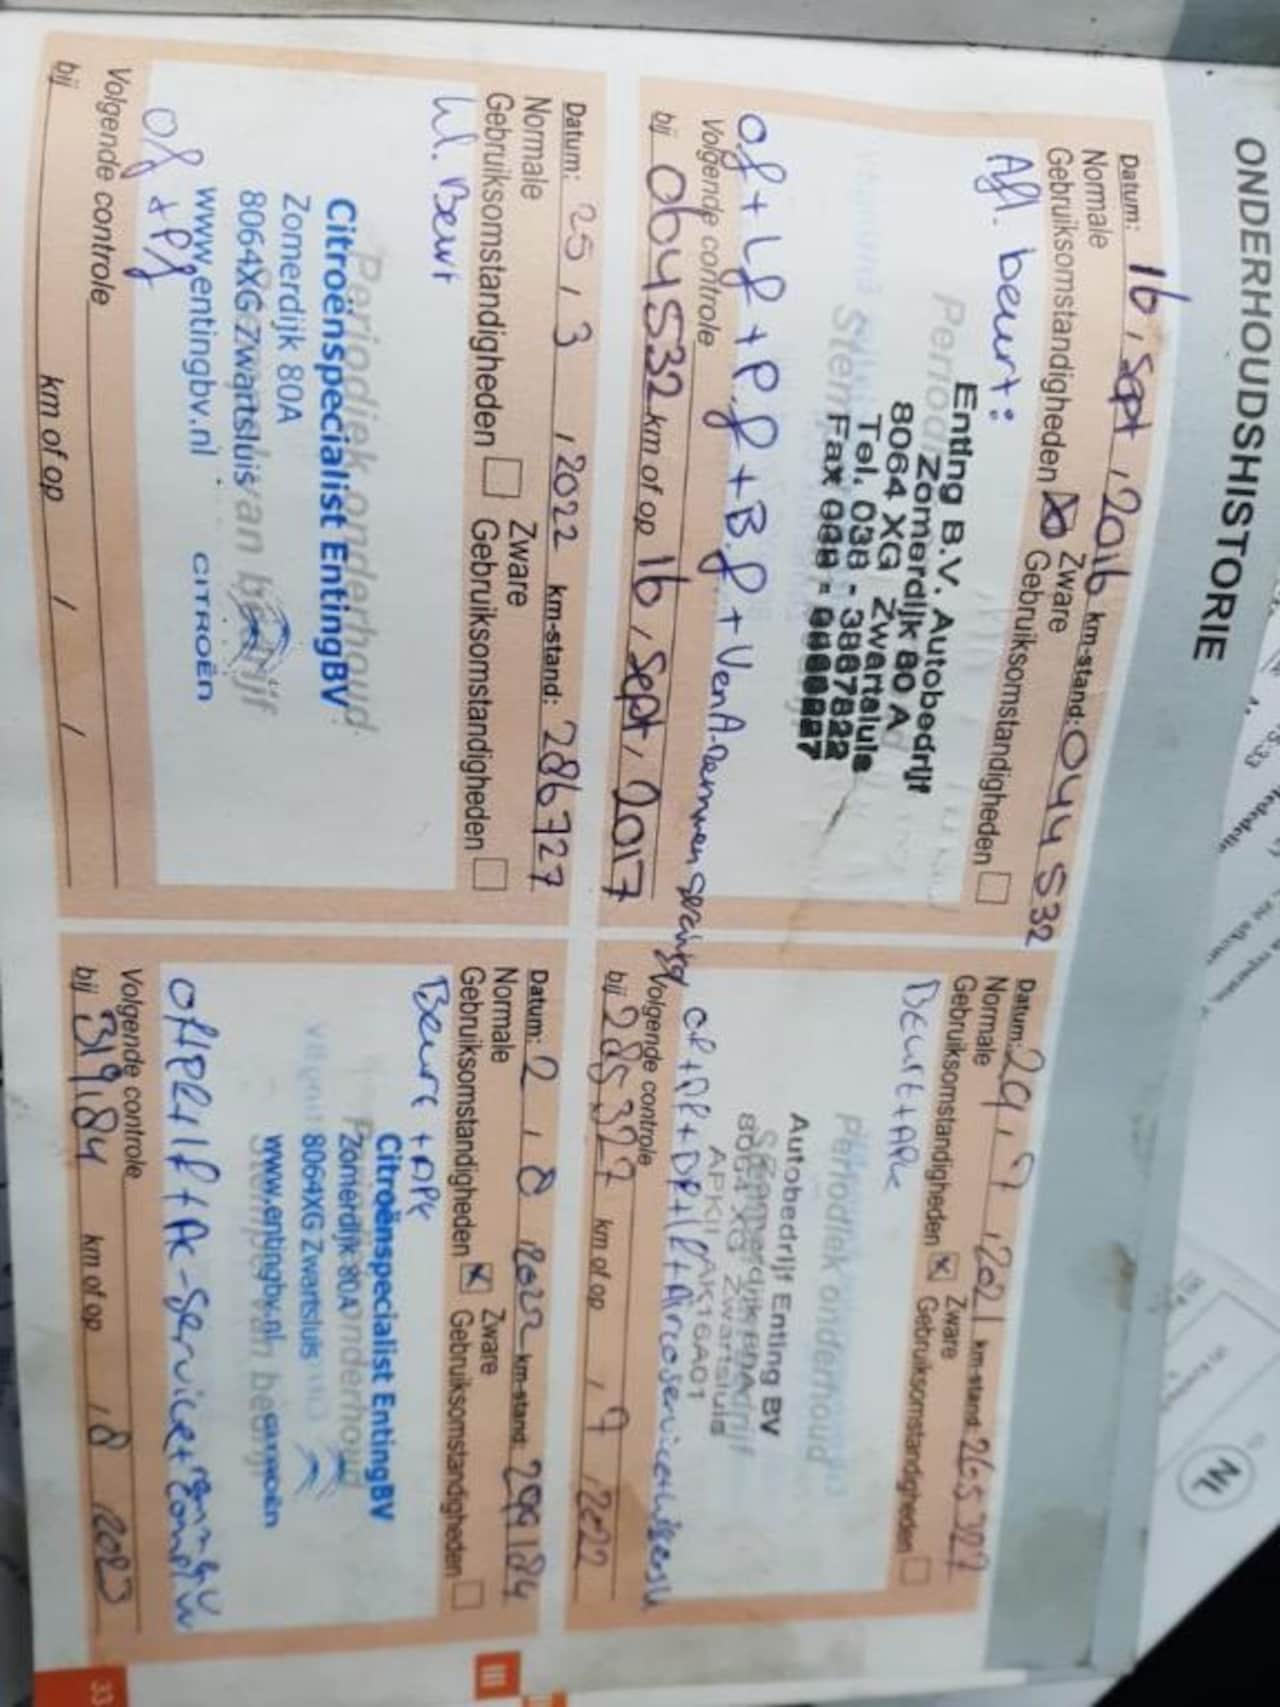 ONDERHOUDSHISTORIE
Datum: 16, Sept, 2016 km-stand: 044532
Normale Zware
Gebruiksomstandigheden Gebruiksomstandigheden
Afl. beurt:
Periodiek
Enting B.V. Autobedrijf
Zomerdijk 80 A
8064 XG Zwartsluis
Tel. 038 - 3867822
Fax
Of + Lf + P.f + B.f + Ven A. Remmen
Volgende controle
bij 064532 km of op 16, Sept, 2017
Datum: 29, 7, 2021 km-stand: 265327
Normale Zware
Gebruiksomstandigheden Gebruiksomstandigheden
Beurt + APK
Periodiek onderhoud
Autobedrijf Enting BV
Zomerdijk 80A
8064 XG Zwartsluis
APKII
+ Aircoservice +
Volgende controle
bij 285327 km of op , 7, 2022
Datum: 25, 3, 2022 km-stand: 286727
Normale Zware
Gebruiksomstandigheden Gebruiksomstandigheden
kl. Beurt
Periodiek onderhoud
Citroënspecialist EntingBV
Zomerdijk 80A
8064XG Zwartsluis van bedrijf
www.entingbv.nl CITROËN
of + Pf
Volgende controle
bij km of op / /
Datum: 2, 8, 2022 km-stand: 299184
Normale Zware
Gebruiksomstandigheden Gebruiksomstandigheden
Beurt + APK
Periodiek onderhoud
Citroënspecialist EntingBV
Zomerdijk 80A
8064XG Zwartsluis
www.entingbv.nl CITROËN
Stempel van bedrijf
+ AC-Service +
Volgende controle
bij 319184 km of op , 8, 2023
III
33